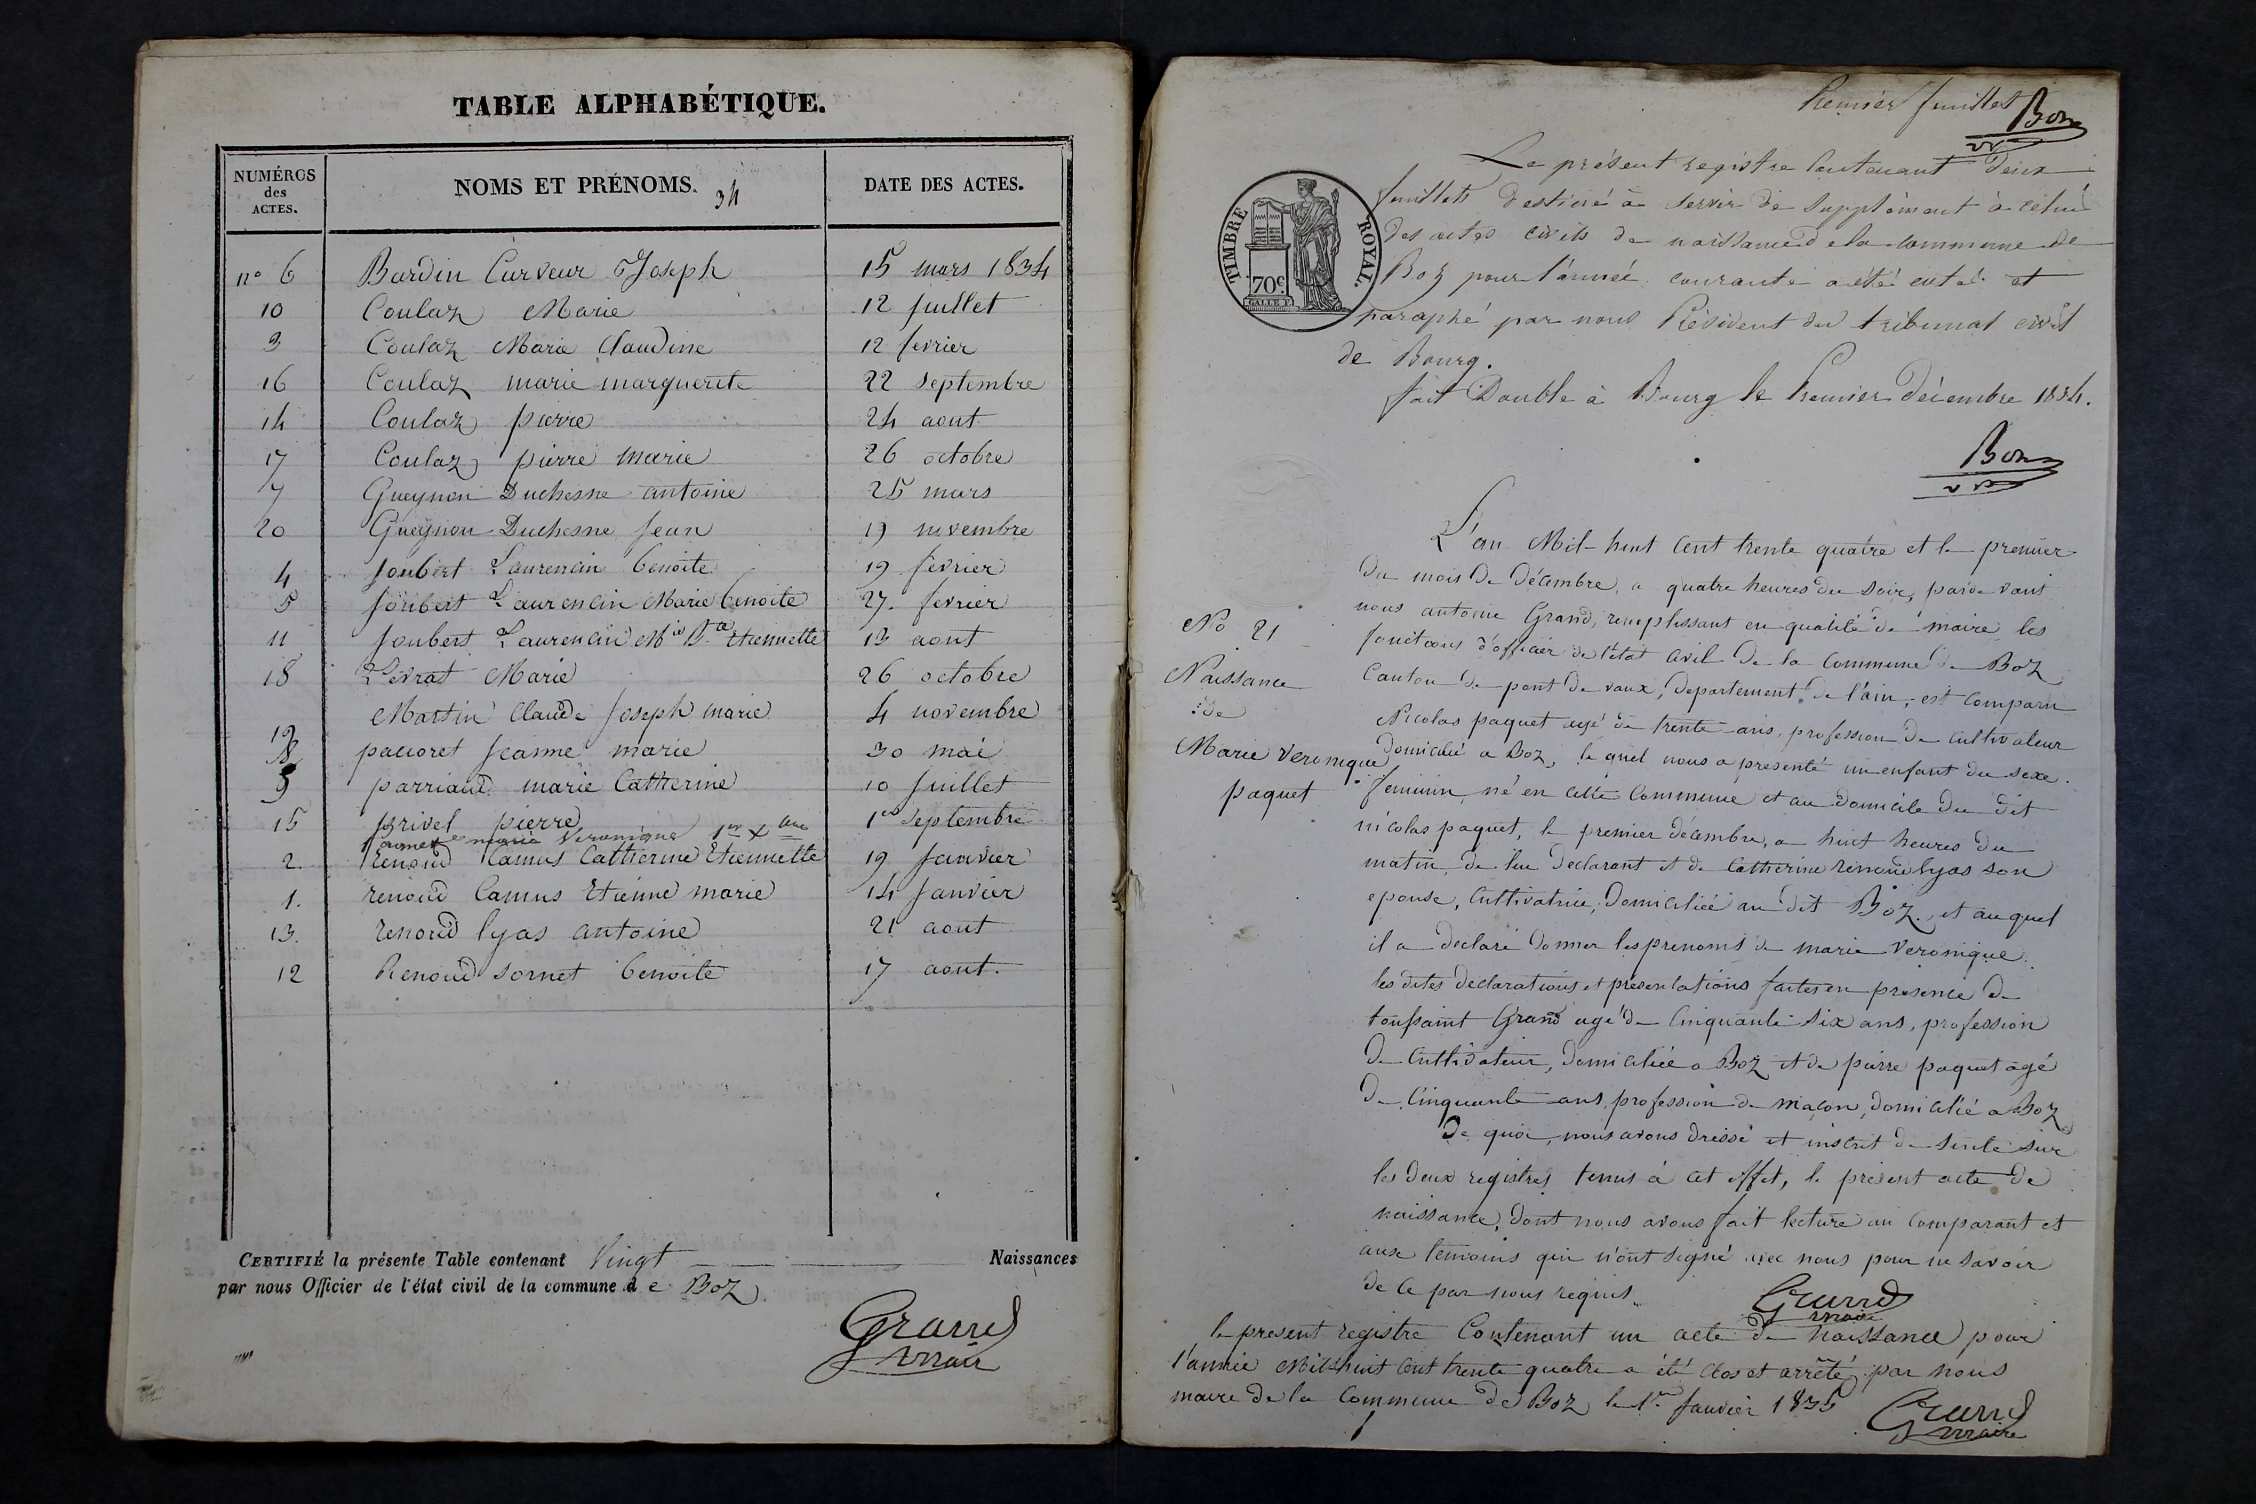 TABLE ALPHABÉTIQUE.
NUMÉROS
des
ACTES.
NOMS ET PRÉNOMS. 34
DATE DES ACTES.
n° 6 Bardin Curveur Joseph 15 mars 1834
10 Coulaz Marie 12 juillet
3 Coulaz Marie Claudine 12 fevrier
16 Coulaz marie marguerite 22 septembre
14 Coulaz pierre 24 aout
17 Coulaz pierre marie 26 octobre
7 Gueynon Duchesne antoine 25 mars
20 Gueynon Duchesne Jean 19 novembre
4 Joubert Laurencin benoite 19 fevrier
5 Joubert Laurencin Marie benoite 27. fevrier
11 Joubert Laurencin Mie Bte Etiennette 13 aout
18 Levrat Marie 26 octobre
19 Martin Claude Joseph marie 4 novembre
8 pacoret Jeanne marie 30 mai
9 parriaud marie Catherine 10 Juillet
15 privel pierre 1er Septembre
marie Veronique 1er Xbre
2. renoud Camus Catherine Etiennette 19 Janvier
1. renoud Camus Etienne marie 14 Janvier
13. renoud lyas antoine 21 aout
12 Renoud sornet benoite 17 aout.
CERTIFIÉ la présente Table contenant Vingt Naissances
par nous Officier de l'état civil de la commune de Boz
Grand
maire
Premier feuillet
Bon
Le présent registre Contenant Deux
feuillets destiné à servir de supplément à celui
des actes civils de naissance de la commune de
Boz pour l'année courante a été coté et
paraphé par nous Président du tribunal civil
de Bourg.
fait Double à Bourg le Premier décembre 1834.
Bon
TIMBRE ROYAL.
70c.
GALLE F.
No 21
Naissance
de
Marie Veronique
paquet
L'an Mil-huit Cent trente quatre et le premier
Du mois De Décembre, a quatre heures du soir, pardevant
nous antoine Grand, remplissant en qualité de maire les
fonctions d'officier de l'état Civil De la Commune de Boz
Canton de pont de vaux, departement de l'ain, est Comparu
Nicolas paquet agé de trente ans, profession De Cultivateur
domicilié a Boz, le quel nous a presenté un enfant du sexe
feminin, né en cette Commune et au domicile Du dit
nicolas paquet, le premier décembre, a huit heures du
matin, de lui Declarant et de Catherine renoud lyas son
epouse, Cultivatrice, Domiciliée au dit Boz, et auquel
il a declaré donner les prenoms de marie Veronique
les dites declarations et presentations faites en presence De
toussaint Grand agé de Cinquante six ans, profession
De Cultivateur, domiciliée a Boz et de pierre paquet agé
De Cinquante ans, profession de maçon, domicilié a Boz
De quoi, nous avons dressé et inscrit de suite sur
les deux registres tenus à cet effet, le present acte de
naissance, dont nous avons fait lecture au Comparant et
aux temoins qui n'ont signé avec nous pour ne savoir
de ce par nous requis
Grand
maire
le present registre Contenant un acte de naissance pour
l'année Mil huit Cent trente quatre a été clos et arrêté par nous
maire de la Commune De Boz le 1er Janvier 1835
Grand
maire